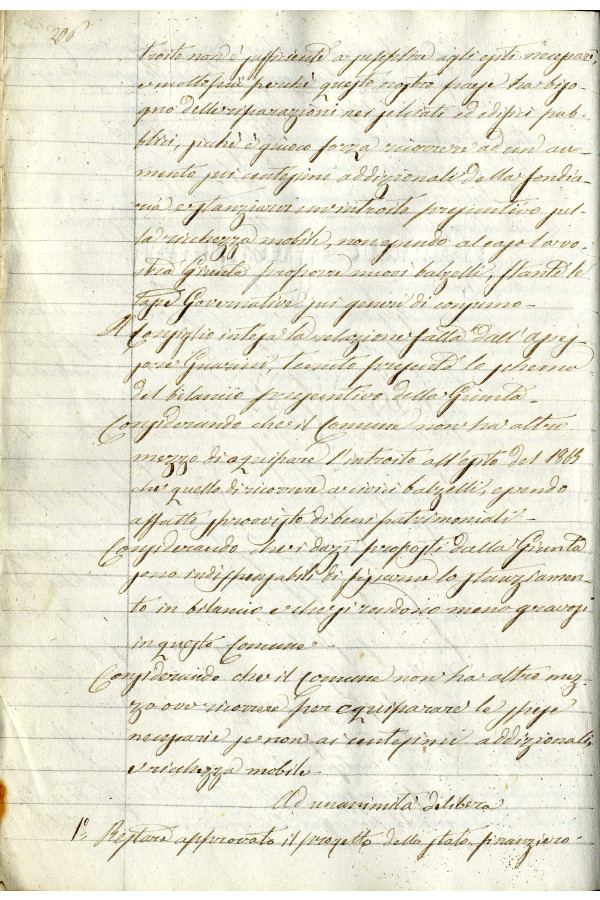 206
troito non è sufficiente a sopperire agli esiti necessari,
e molto più perché questo nostro paese ha biso-
gno delle riparazioni nei selciati ed edifici pub-
blici, perché è giuoco forza ricorrere ad un au-
mento sui centesimi addizionali della fondia-
ria e stanziarvi un introito presuntivo sul-
la ricchezza mobile, non essendo al caso la vo-
stra Giunta proporre nuovi balzelli, stante le
tasse Governative sui generi di consumo-
Il Consiglio intesa la relazione fatta dall'asses-
sore Guarini, tenuto presente lo schema
del bilancio presuntivo della Giunta-
Considerando che il Comune non ha altro
mezzo di equiparare l'introito all'esito del 1865
che quello di ricorrere a civici balzelli, essendo
affatto sprovvisto di beni patrimoniali-
Considerando che i dazi proposti dalla Giunta
sono indispensabili di figurarne lo stanziamen-
to in bilancio e che si rendono meno gravosi
in questo Comune-
Considerando che il Comune non ha altro mez-
zo ove ricorrere per equiparare le spese
necessarie se non ai centesimi addizionali,
e ricchezza mobile-
Ad unanimità delibera
1º Restare approvato il progetto dello stato finanziero